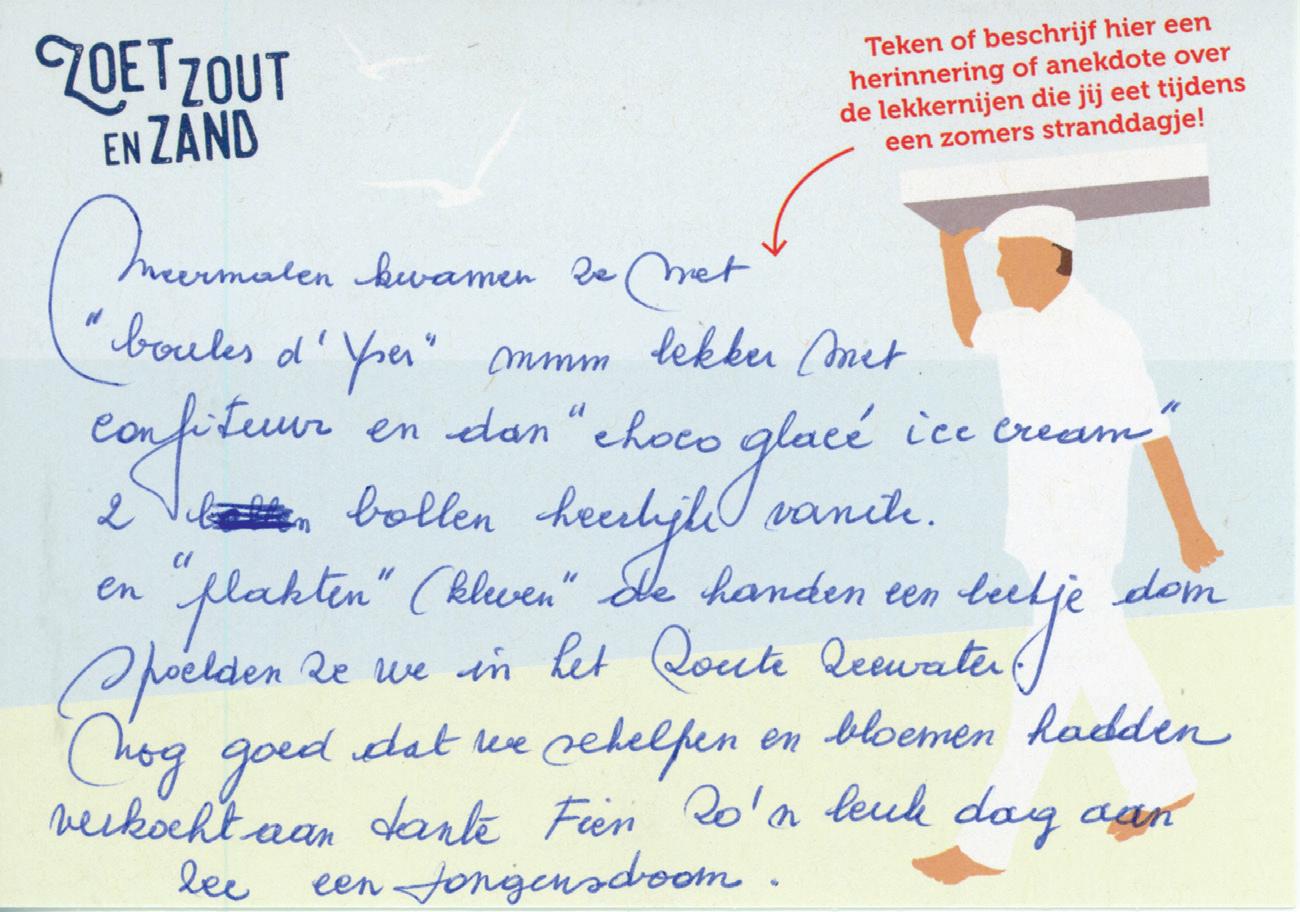 ZOET ZOUT
EN ZAND
Teken of beschrijf hier een
herinnering of anekdote over
de lekkernijen die jij eet tijdens
een zomers stranddagje!
Meermalen kwamen ze met
"boules d' Yser" mmm lekker met
confituur en dan "choco glacé ice cream"
2 bollen heerlijke vanille.
en "plakten" (kleven" de handen een beetje dom
spoelden ze we in het zoute zeewater.
Nog goed dat we schelpen en bloemen hadden
verkocht aan tante Fien zo'n leuk dag aan
zee een jongensdroom.